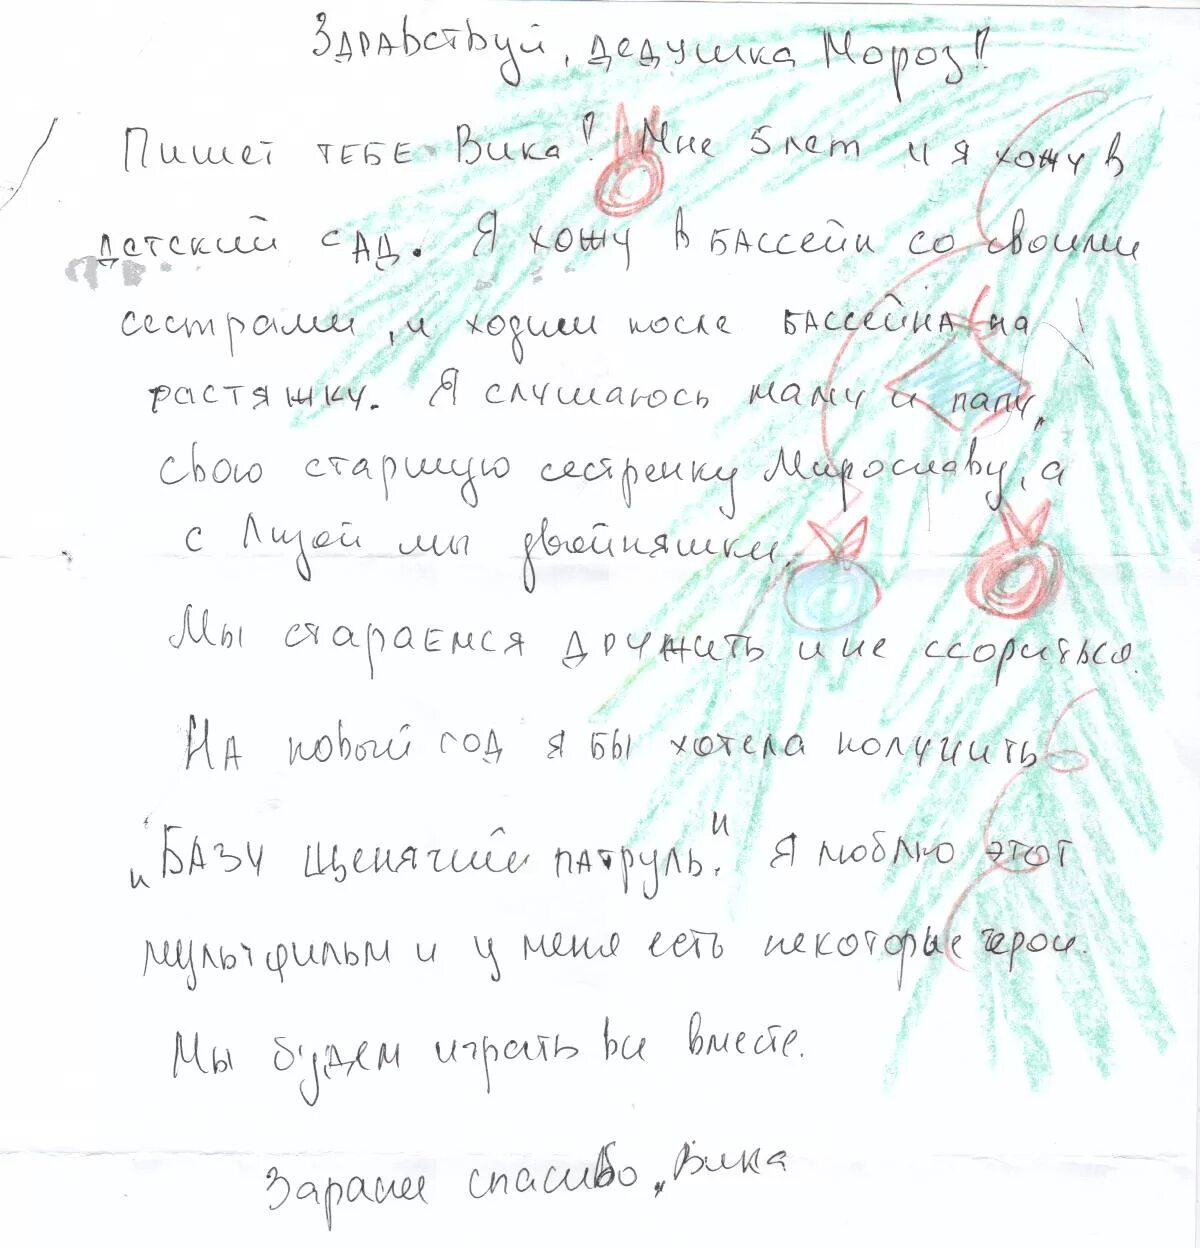 Здравствуй, дедушка Мороз!
Пишет тебе Вика! Мне 5 лет и я хожу в
детский сад. Я хожу в бассейн со своими
сестрами, и ходим после бассейна на
растяжку. Я слушаюсь маму и папу,
свою старшую сестренку Мирославу, а
с Лизой мы двойняшки.
Мы стараемся дружить и не ссориться.
На новый год я бы хотела получить
"Базу щенячий патруль." Я люблю этот
мультфильм и у меня есть некоторые герои.
Мы будем играть все вместе.
Заранее спасибо, Вика